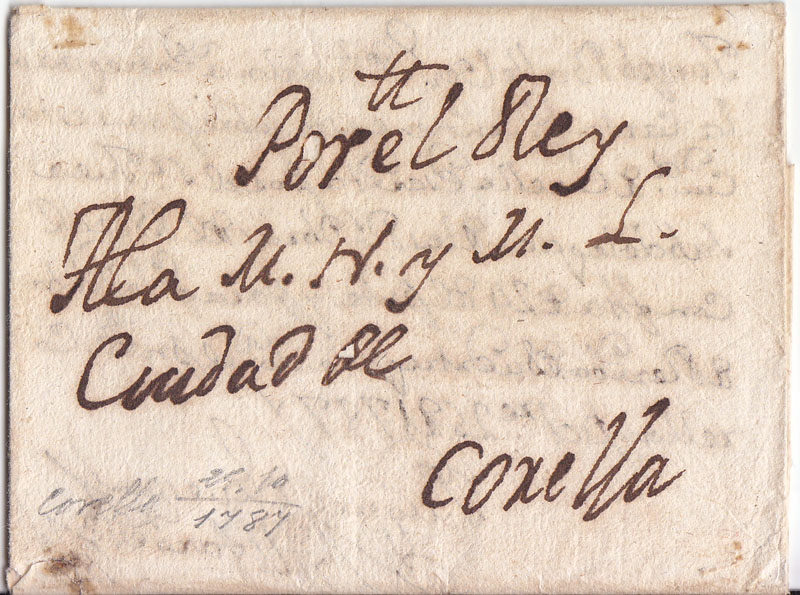 tt
Por el Rey
A la M. N. y M. L.
Ciudad de
Corella
Corella 25.10
1787